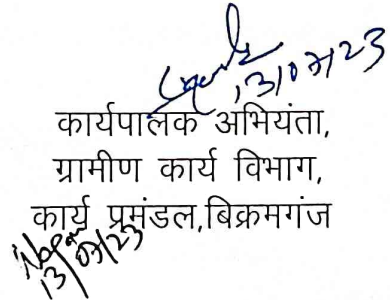 13/07/23
कार्यपालक अभियंता,
ग्रामीण कार्य विभाग,
कार्य प्रमंडल,बिक्रमगंज
13/07/23